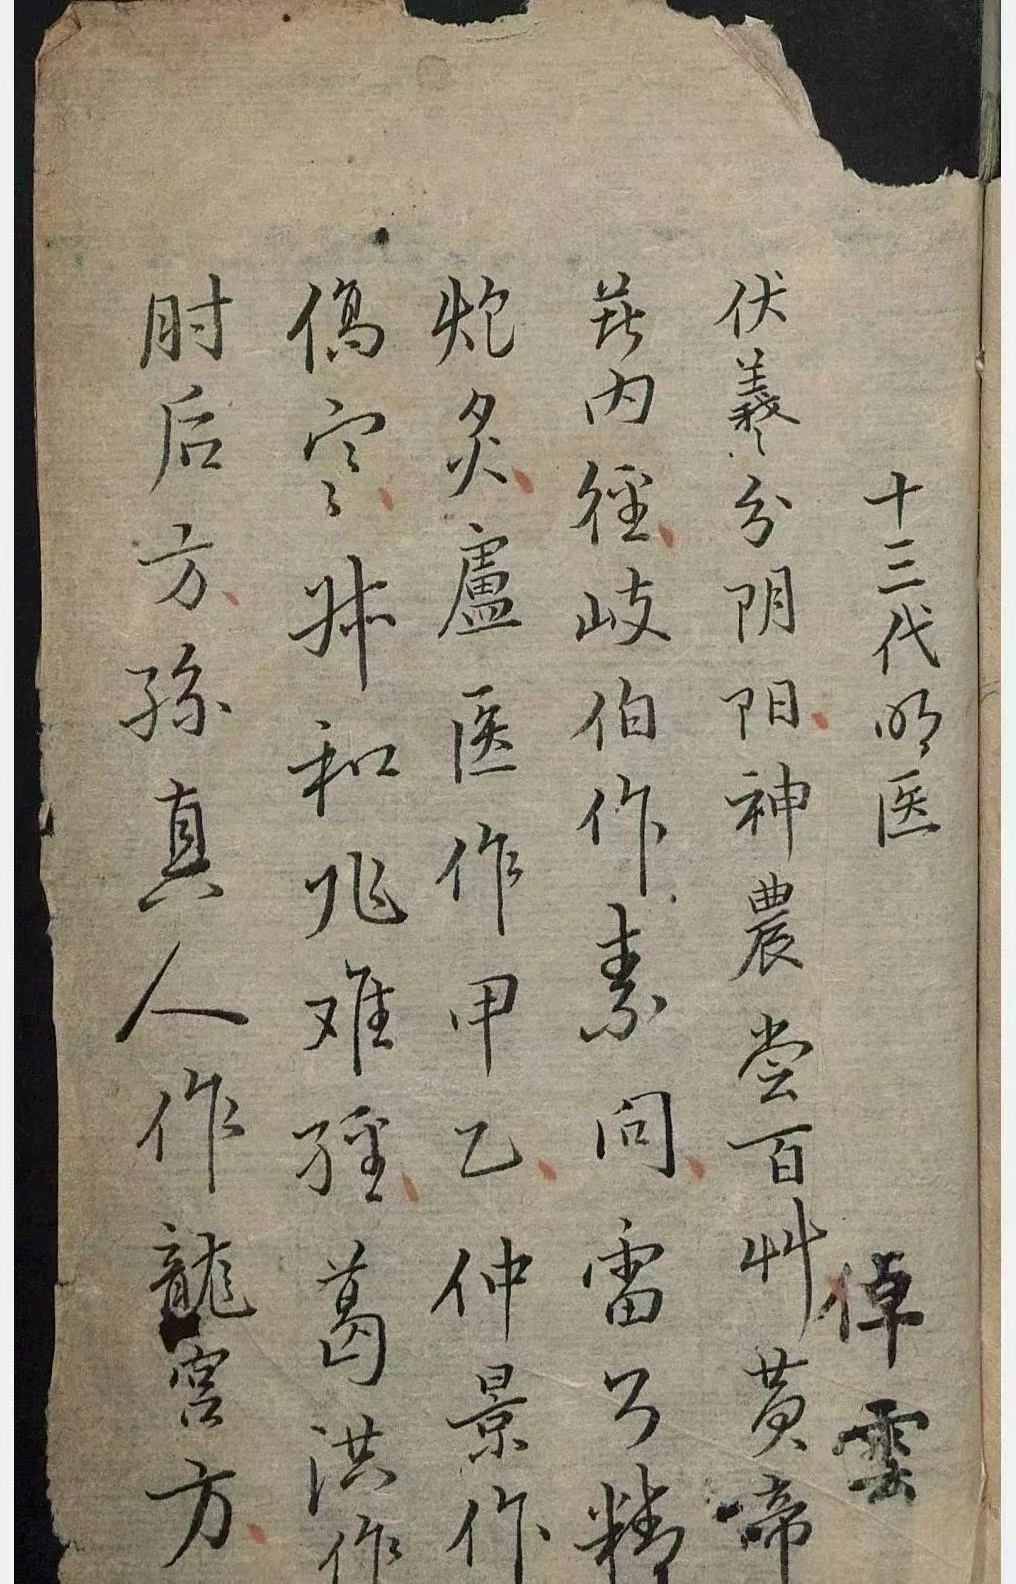 十三代明医
倬雲
伏羲分阴阳、神農尝百艸黄啼
内徑、岐伯作素问、雷公精
炮炙、盧医作甲乙、仲景作
傷寒、叔和兆难經、葛洪作
肘后方、孫真人作龍宫方、